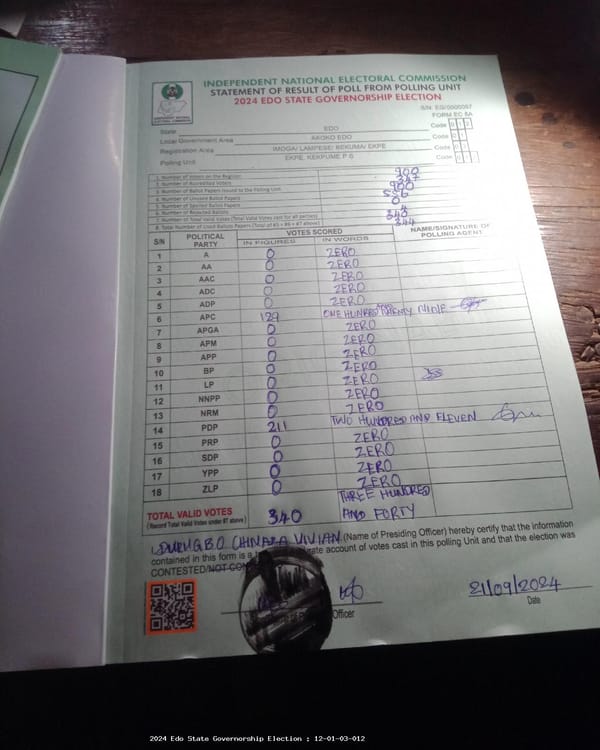 INDEPENDENT NATIONAL ELECTORAL COMMISSION
STATEMENT OF RESULT OF POLL FROM POLLING UNIT
2024 EDO STATE GOVERNORSHIP ELECTION
S/N: EG/0000057
FORM EC 8A
State EDO Code
Local Government Area AKOKO EDO Code
Registration Area IMOGA/ LAMPESE/ BEKUMA/ EKPE Code
Polling Unit EKPE, KEKPUME P S Code
1. Number of Voters on the Register 900
2. Number of Accredited Voters
3. Number of Ballot Papers Issued to the Polling Unit 900
4. Number of Unused Ballot Papers 556
5. Number of Spoiled Ballot Papers 0
6. Number of Rejected Ballots
7. Number of Total Valid Votes (Total Valid Votes cast for all parties) 340
8. Total Number of Used Ballot Papers (Total of #5 + #6 + #7 above) 344
S/N POLITICAL PARTY VOTES SCORED NAME/SIGNATURE OF POLLING AGENT
IN FIGURES IN WORDS
1 A 0 ZERO
2 AA 0 ZERO
3 AAC 0 ZERO
4 ADC 0 ZERO
5 ADP 0 ZERO
6 APC 129 ONE HUNDRED AND TWENTY NINE
7 APGA 0 ZERO
8 APM 0 ZERO
9 APP 0 ZERO
10 BP 0 ZERO
11 LP 0 ZERO
12 NNPP 0 ZERO
13 NRM 0 ZERO
14 PDP 211 TWO HUNDRED AND ELEVEN
15 PRP 0 ZERO
16 SDP 0 ZERO
17 YPP 0 ZERO
18 ZLP 0 ZERO
TOTAL VALID VOTES 340 THREE HUNDRED AND FORTY
(Record Total Valid Votes under #7 above)
I, CHINAZA VIVIAN (Name of Presiding Officer) hereby certify that the information
contained in this form is a account of votes cast in this polling Unit and that the election was
CONTESTED/NOT
Officer
21/09/2024
Date
2024 Edo State Governorship Election : 12-01-03-012